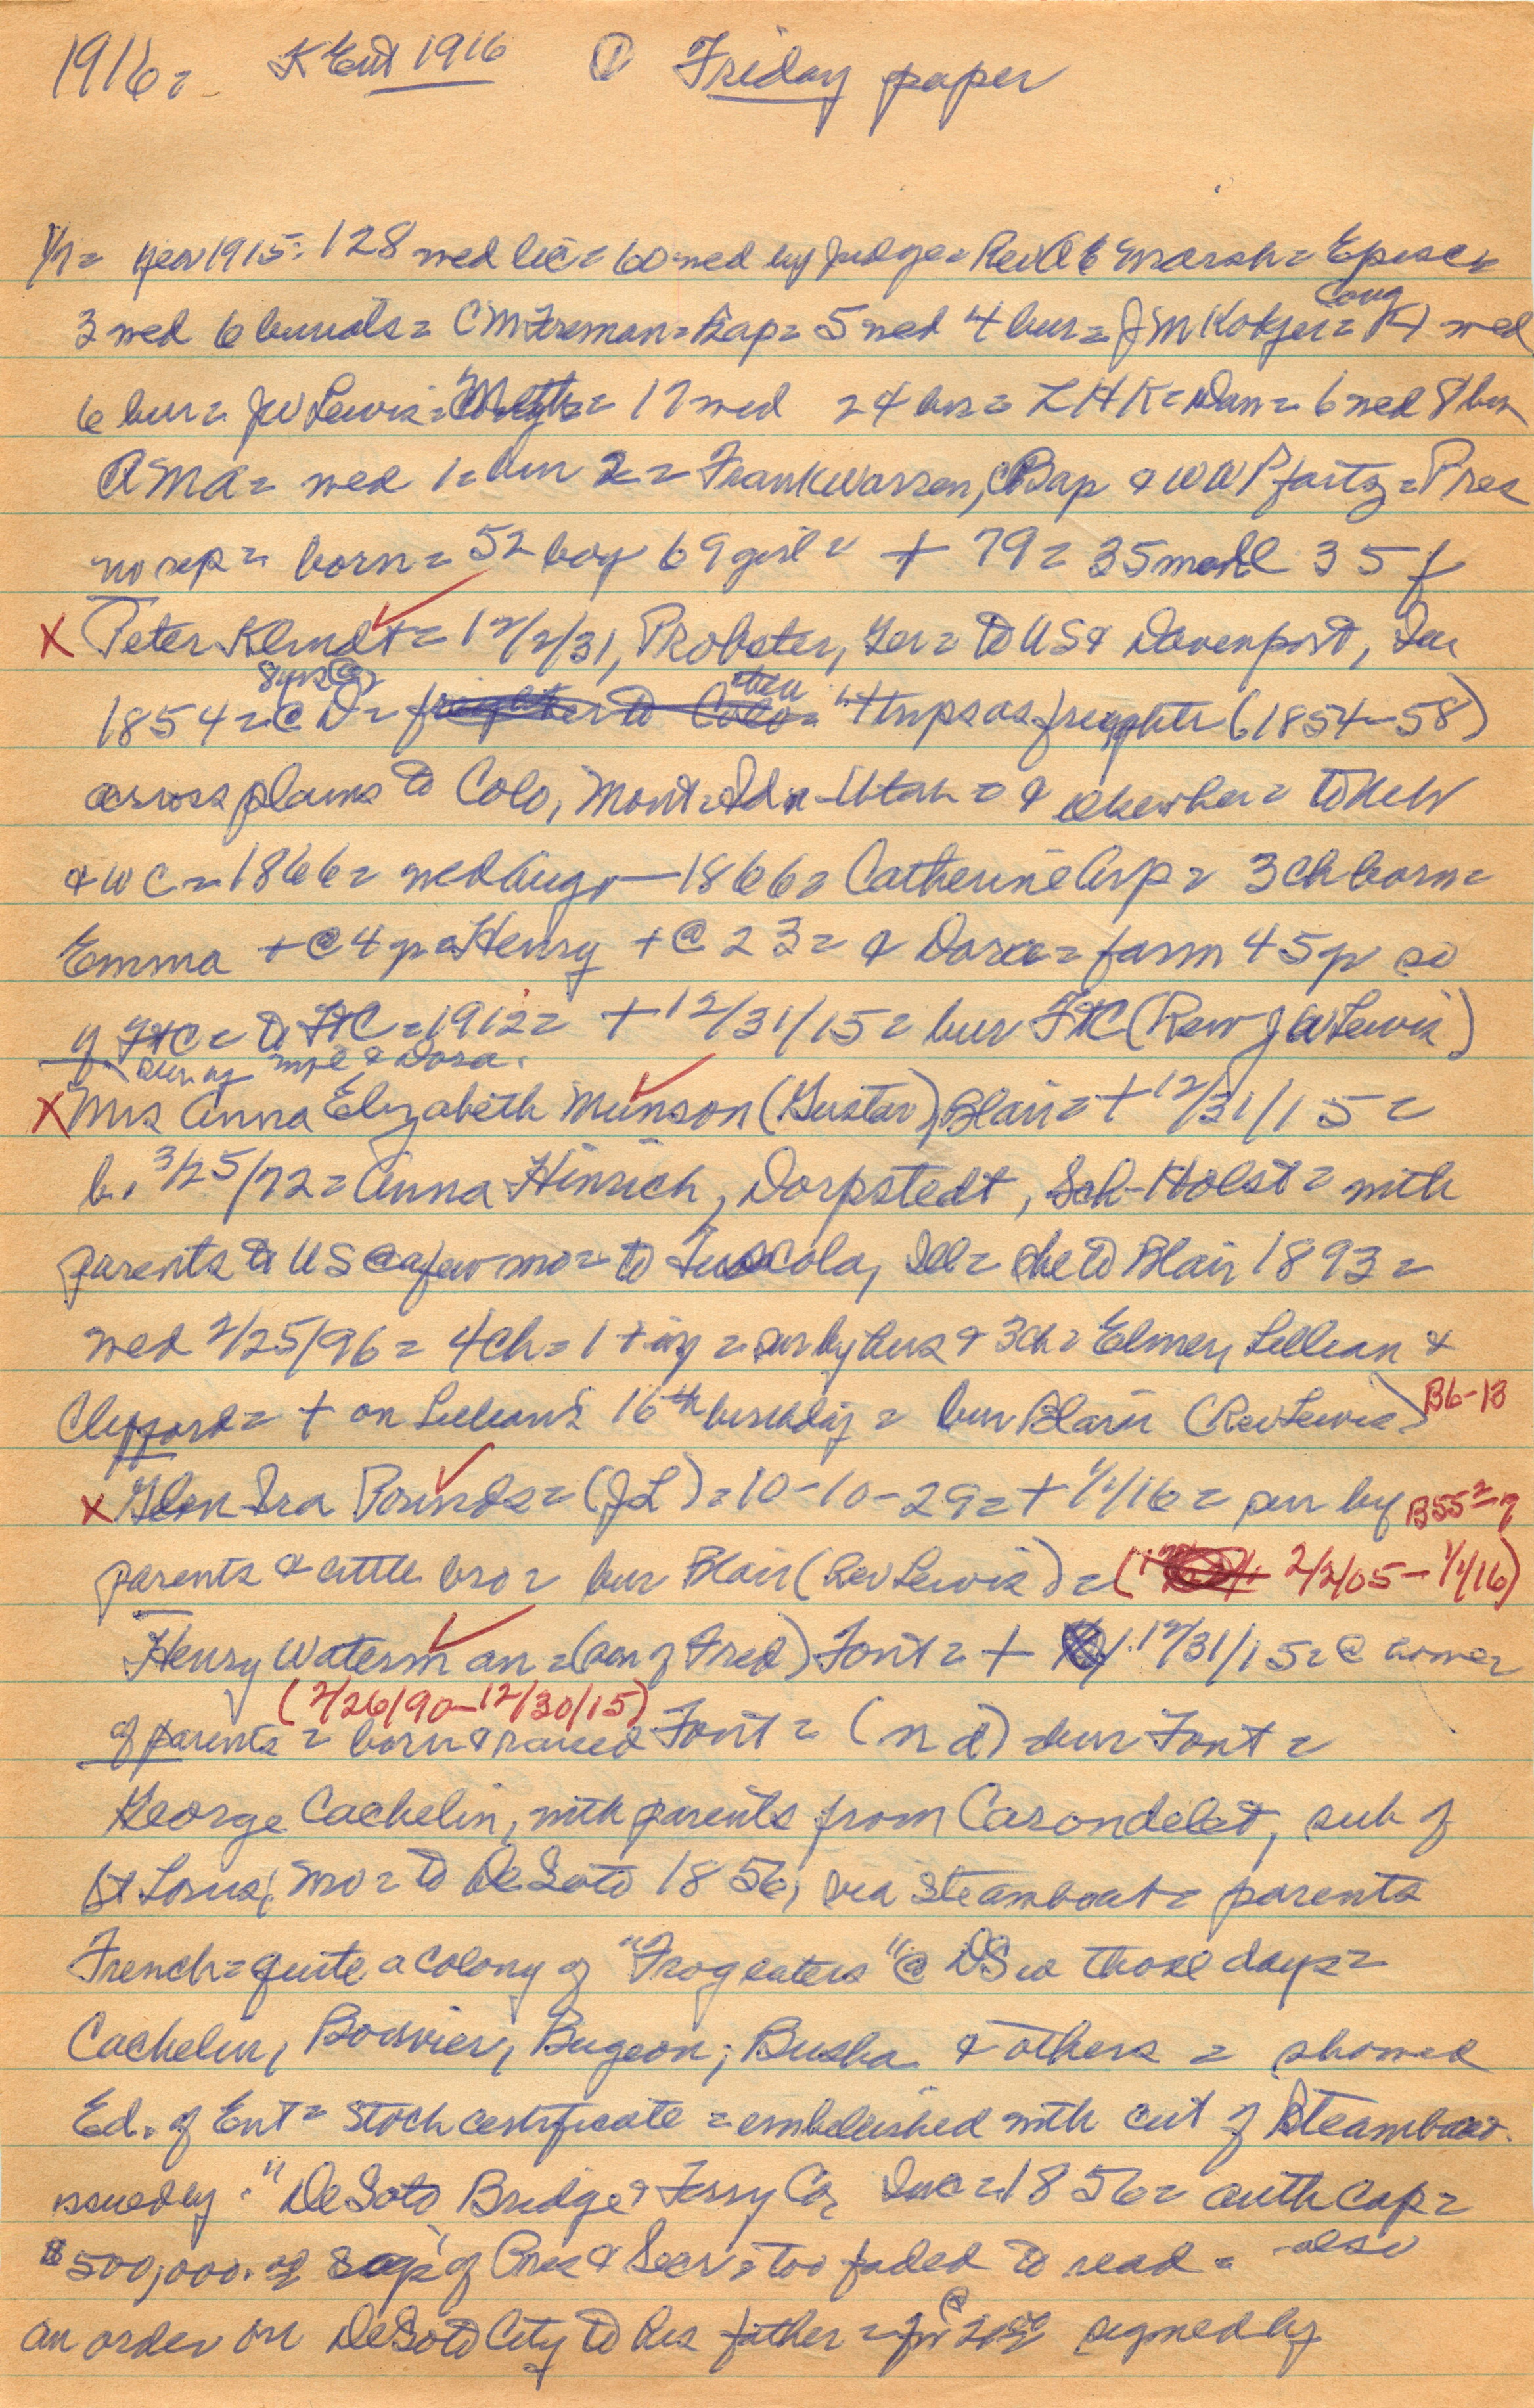 1916= Ent 1916 ① Friday paper
1/7= year 1915: 128 wed lic= 60 wed by Judge= Rev A E Marsh= Episc=
3 wed 6 burials= C M Freman= Bap= 5 wed 4 bur= J M Kokjer= Cong 4 wed
6 bur= JW Lewis= Meth= 17 wed 24 bur= L H K= Dan= 6 wed 8 bur
A M A= wed 1= bur 2= Frank Warren, Bap & W W Pfautz= Pres
no rep= born= 52 boy 69 girl= + 79= 35 male 35 f
X Peter Klindt= 12/2/31, Probster, Ger= to US & Davenport, Iu
1854= 8 yrs @ D= then 4 trips as freighter (1854-58)
across plains to Colo, Mont= Ida- Utah= & elsewher= to Neb
& W C= 1866= wed Aug - 1866= Catherine Arp= 3 ch born=
Emma +@ 4 y= Henry +@ 23= & Dora= farm 45 y so
of FtC= to FtC= 1912= + 12/31/15= bur FtC (Rev J W Lewis)
sur by wife & Dora.
X Mrs Anna Elizabeth Munson (Gustav) Blair= + 12/31/15=
b. 3/25/72= Anna Hinrich, Dorpstedt, Sch-Holst= with
parents to US @ a few mo= to Tuscola, Ill= she to Blair 1893=
wed 2/25/96= 4 ch= 1 + iny= sur by hus & 3 ch= Elmer, Lillian &
Clifford= + on Lillian's 16th birthday= bur Blair (Rev Lewis) B6-13
X Glen Ira Pounds= (JL)= 10-10-29= + 1/1/16= sur by B55=7
parents & little bro= bur Blair (Rev Lewis)= ( 2/2/05-1/1/16)
Henry Waterman= (son of Fred) Font= + 12/31/15= @ home=
(2/26/90-12/30/15)
of parents= born & raised Font= (n d) bur Font=
George Cachelin, with parents from Carondelet, sub of
St Louis, Mo= to DeSoto 1856, via steamboat= parents
French= quite a colony of "Frogeaters" @ DS in those days=
Cachelin, Bouvier, Bugeon, Busha & others= showed
Ed. of Ent= stock certificate= embellished with cut of Steamboat.
issued by: "DeSoto Bridge & Ferry Co, Inc= 1856= auth cap=
$500,000. of Pres & Secr= too faded to read= also
an order on DeSoto City to his father= signed by